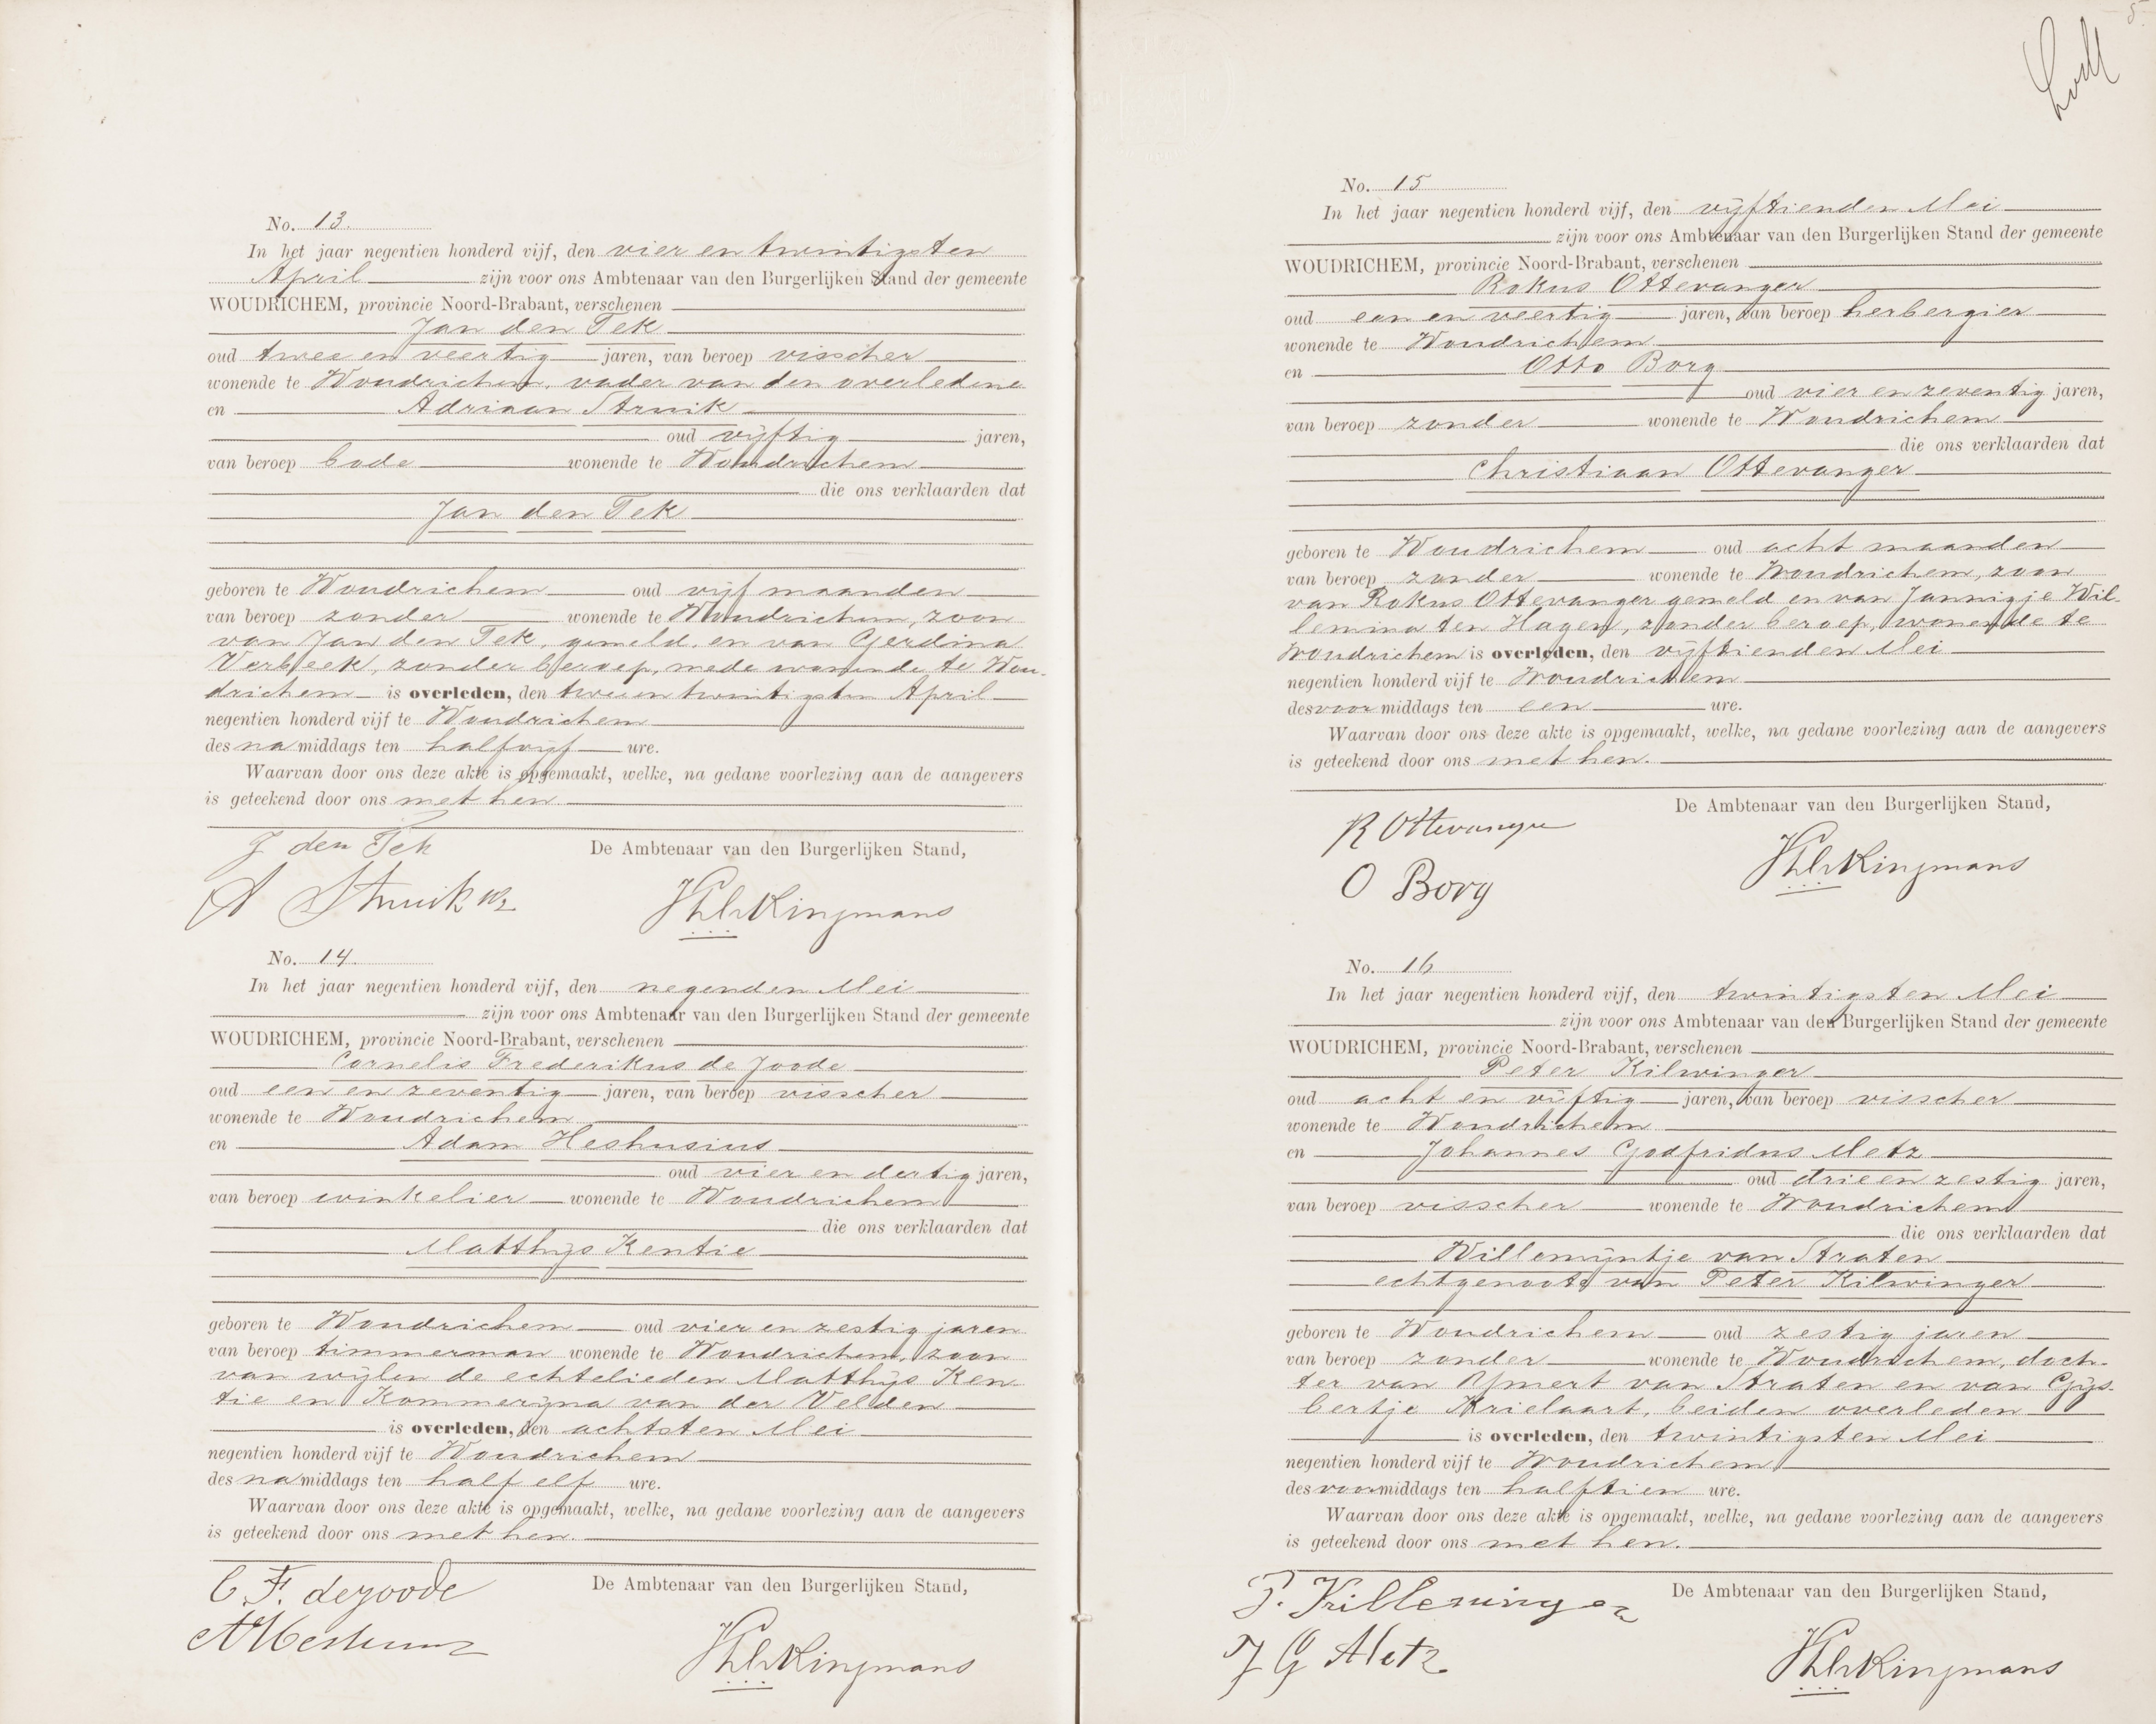 No. 13.
In het jaar negentien honderd vijf, den vier en twintigsten
April zijn voor ons Ambtenaar van den Burgerlijken Stand der gemeente
WOUDRICHEM, provincie Noord-Brabant, verschenen
Jan den Tek
oud twee en veertig jaren, van beroep visscher
wonende te Woudrichem, vader van den overledene
en Adriaan Struik
oud vijftig jaren,
van beroep bode wonende te Woudrichem
die ons verklaarden dat
Jan den Tek
geboren te Woudrichem oud vijf maanden
van beroep zonder wonende te Woudrichem, zoon
van Jan den Tek, gemeld, en van Gerdina
Verbeek, zonder beroep, mede wonende te Wou-
drichem is overleden, den twee en twintigsten April
negentien honderd vijf te Woudrichem
des na middags ten half vijf ure.
Waarvan door ons deze akte is opgemaakt, welke, na gedane voorlezing aan de aangevers
is geteekend door ons met hen.
J den Tek
De Ambtenaar van den Burgerlijken Stand,
A Struik
Kingmans
No. 14.
In het jaar negentien honderd vijf, den negenden Mei
zijn voor ons Ambtenaar van den Burgerlijken Stand der gemeente
WOUDRICHEM, provincie Noord-Brabant, verschenen
Cornelis Frederikus de Joode
oud een en zeventig jaren, van beroep visscher
wonende te Woudrichem
en Adam Heshusius
oud vier en dertig jaren,
van beroep winkelier wonende te Woudrichem
die ons verklaarden dat
Matthijs Kentie
geboren te Woudrichem oud vier en zestig jaren
van beroep timmerman wonende te Woudrichem, zoon
van wijlen de echtelieden Matthijs Ken-
tie en Kommerijna van der Velden
is overleden, den achtsten Mei
negentien honderd vijf te Woudrichem
des na middags ten half elf ure.
Waarvan door ons deze akte is opgemaakt, welke, na gedane voorlezing aan de aangevers
is geteekend door ons met hen.
C. F. de Joode
De Ambtenaar van den Burgerlijken Stand,
Kingmans
5
No. 15
In het jaar negentien honderd vijf, den vijftienden Mei
zijn voor ons Ambtenaar van den Burgerlijken Stand der gemeente
WOUDRICHEM, provincie Noord-Brabant, verschenen
Rokus Ottevanger
oud een en veertig jaren, van beroep herbergier
wonende te Woudrichem
en Otto Borg
oud vier en zeventig jaren,
van beroep zonder wonende te Woudrichem
die ons verklaarden dat
Christiaan Ottevanger
geboren te Woudrichem oud acht maanden
van beroep zonder wonende te Woudrichem, zoon
van Rokus Ottevanger gemeld en van Jannigje Wil-
lemina ten Hagen, zonder beroep, wonende te
Woudrichem is overleden, den vijftienden Mei
negentien honderd vijf te Woudrichem
des voor middags ten een ure.
Waarvan door ons deze akte is opgemaakt, welke, na gedane voorlezing aan de aangevers
is geteekend door ons met hen.
De Ambtenaar van den Burgerlijken Stand,
R Ottevanger
O Borg
Kingmans
No. 16
In het jaar negentien honderd vijf, den twintigsten Mei
zijn voor ons Ambtenaar van den Burgerlijken Stand der gemeente
WOUDRICHEM, provincie Noord-Brabant, verschenen
Peter Kilwinger
oud acht en vijftig jaren, van beroep visscher
wonende te Woudrichem
en Johannes Godfridus Metz
oud drie en zestig jaren,
van beroep visscher wonende te Woudrichem
die ons verklaarden dat
Willemijntje van Straten
echtgenoote van Peter Kilwinger
geboren te Woudrichem oud zestig jaren
van beroep zonder wonende te Woudrichem, doch-
ter van IJmert van Straten en van Gijs-
bertje Krielaart, beiden overleden
is overleden, den twintigsten Mei
negentien honderd vijf te Woudrichem
des voormiddags ten half tien ure.
Waarvan door ons deze akte is opgemaakt, welke, na gedane voorlezing aan de aangevers
is geteekend door ons met hen.
De Ambtenaar van den Burgerlijken Stand,
J G Metz
Kingmans